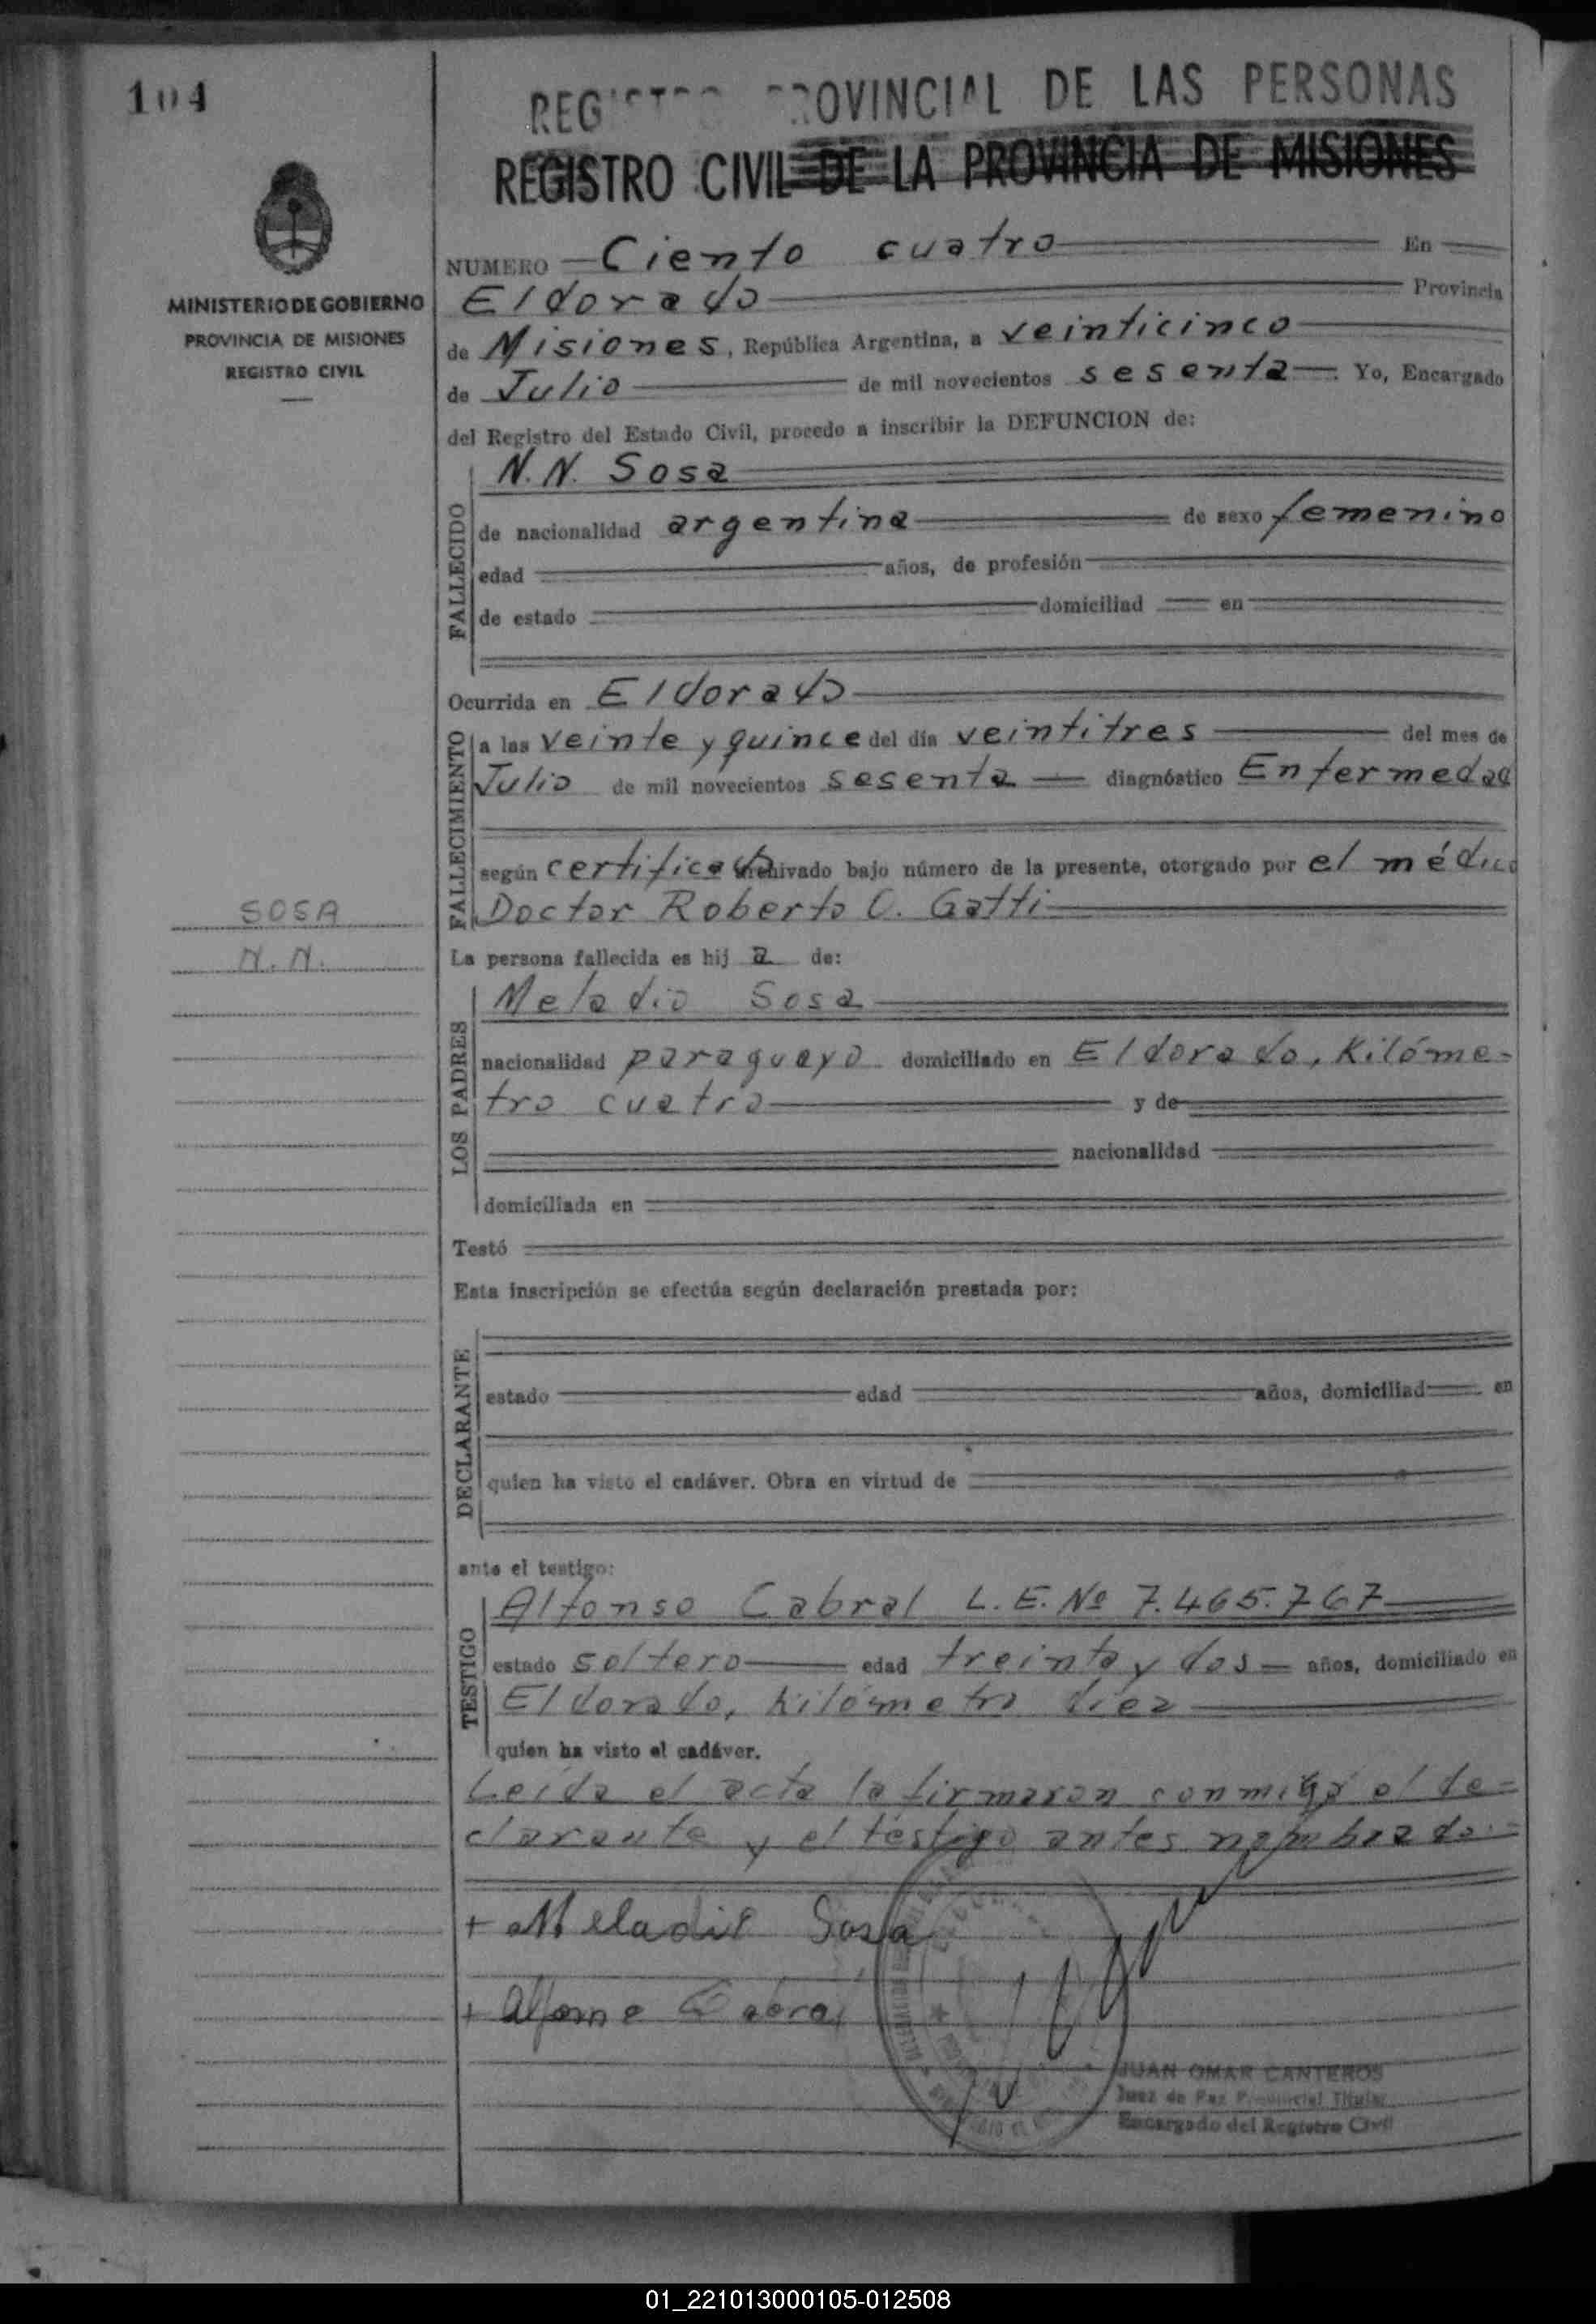 104
REGISTRO PROVINCIAL DE LAS PERSONAS
REGISTRO CIVIL DE LA PROVINCIA DE MISIONES
MINISTERIO DE GOBIERNO
PROVINCIA DE MISIONES
REGISTRO CIVIL
NUMERO Ciento cuatro En
Eldorado Provincia
de Misiones, República Argentina, a veinticinco
de Julio de mil novecientos sesenta. Yo, Encargado
del Registro del Estado Civil, procedo a inscribir la DEFUNCION de:
FALLECIDO
N.N. Sosa
de nacionalidad argentina de sexo femenino
edad años, de profesión
de estado domiciliad en
Ocurrida en Eldorado
FALLECIMIENTO
a las veinte y quince del día veintitres del mes de
Julio de mil novecientos sesenta diagnóstico Enfermedad
según certificado archivado bajo número de la presente, otorgado por el médico
Doctor Roberto C. Gatti
SOSA
N.N.
La persona fallecida es hij a de:
LOS PADRES
Meladio Sosa
nacionalidad paraguayo domiciliado en Eldorado, Kilóme-
tro cuatro y de
nacionalidad
domiciliada en
Testó
Esta inscripción se efectúa según declaración prestada por:
DECLARANTE
estado edad años, domiciliad en
quien ha visto el cadáver. Obra en virtud de
ante el testigo:
TESTIGO
Alfonso Cabral L.E. Nº 7.465.767
estado soltero edad treinta y dos años, domiciliado en
Eldorado, Kilómetro diez
quien ha visto el cadáver.
Leída el acta la firmaron conmigo el de-
clarante y el testigo antes nombrado.-
+ Meladio Sosa
+ Alfonso Cabral
JUAN OMAR CANTEROS
Juez de Paz Provincial Titular
Encargado del Registro Civil
01_221013000105-012508